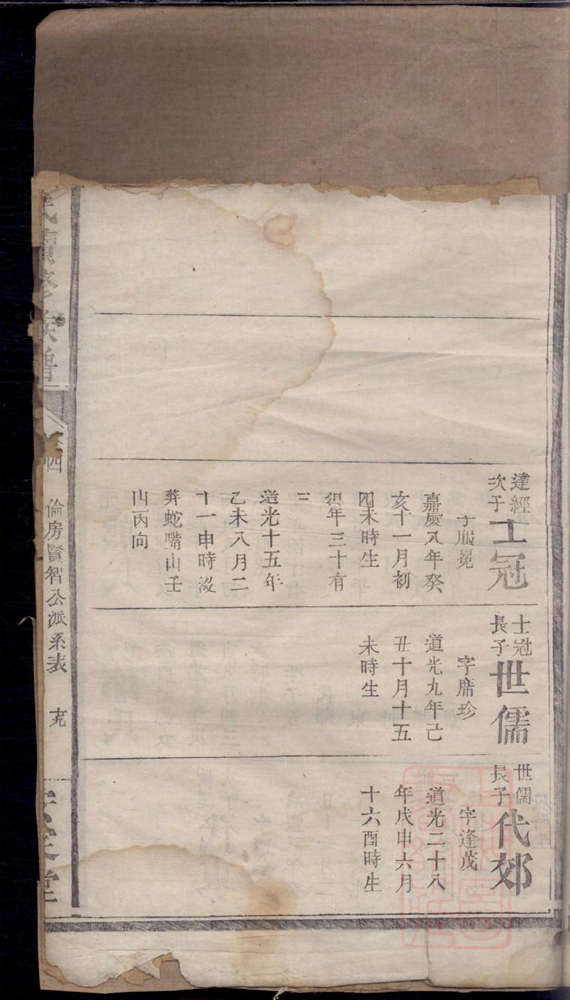 達經
次子
士冠
字服冕
嘉慶八年癸
亥十一月初
四未時生
得年三十有
三
道光十五年
乙未八月二
十一申時沒
葬蛇嘴山壬
山丙向
士冠
長子
世儒
字席珍
道光九年己
丑十月十五
未時生
世儒
長子
代郊
字逢茂
道光二十八
年戊申六月
十六酉時生
氏續修族譜
卷四
倫房賢智公派系表
堂